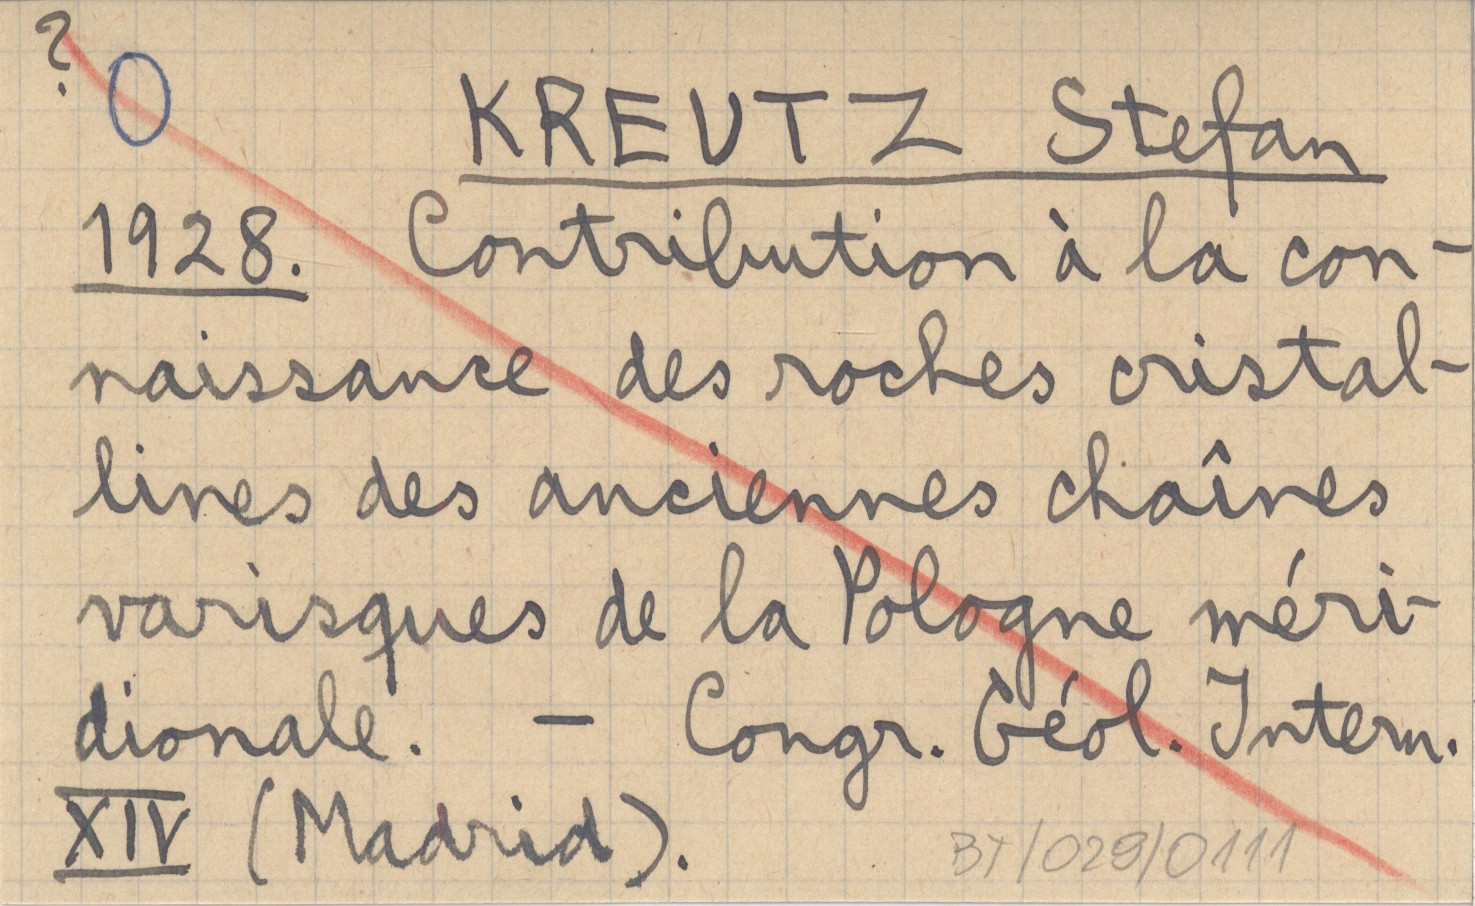 ?
KREUTZ Stefan
1928. Contribution à la con-
naissance des roches cristal-
lines des anciennes chaînes
varisques de la Pologne méri-
dionale. - Congr. Géol. Intern.
XIV (Madrid).
BT/029/0111